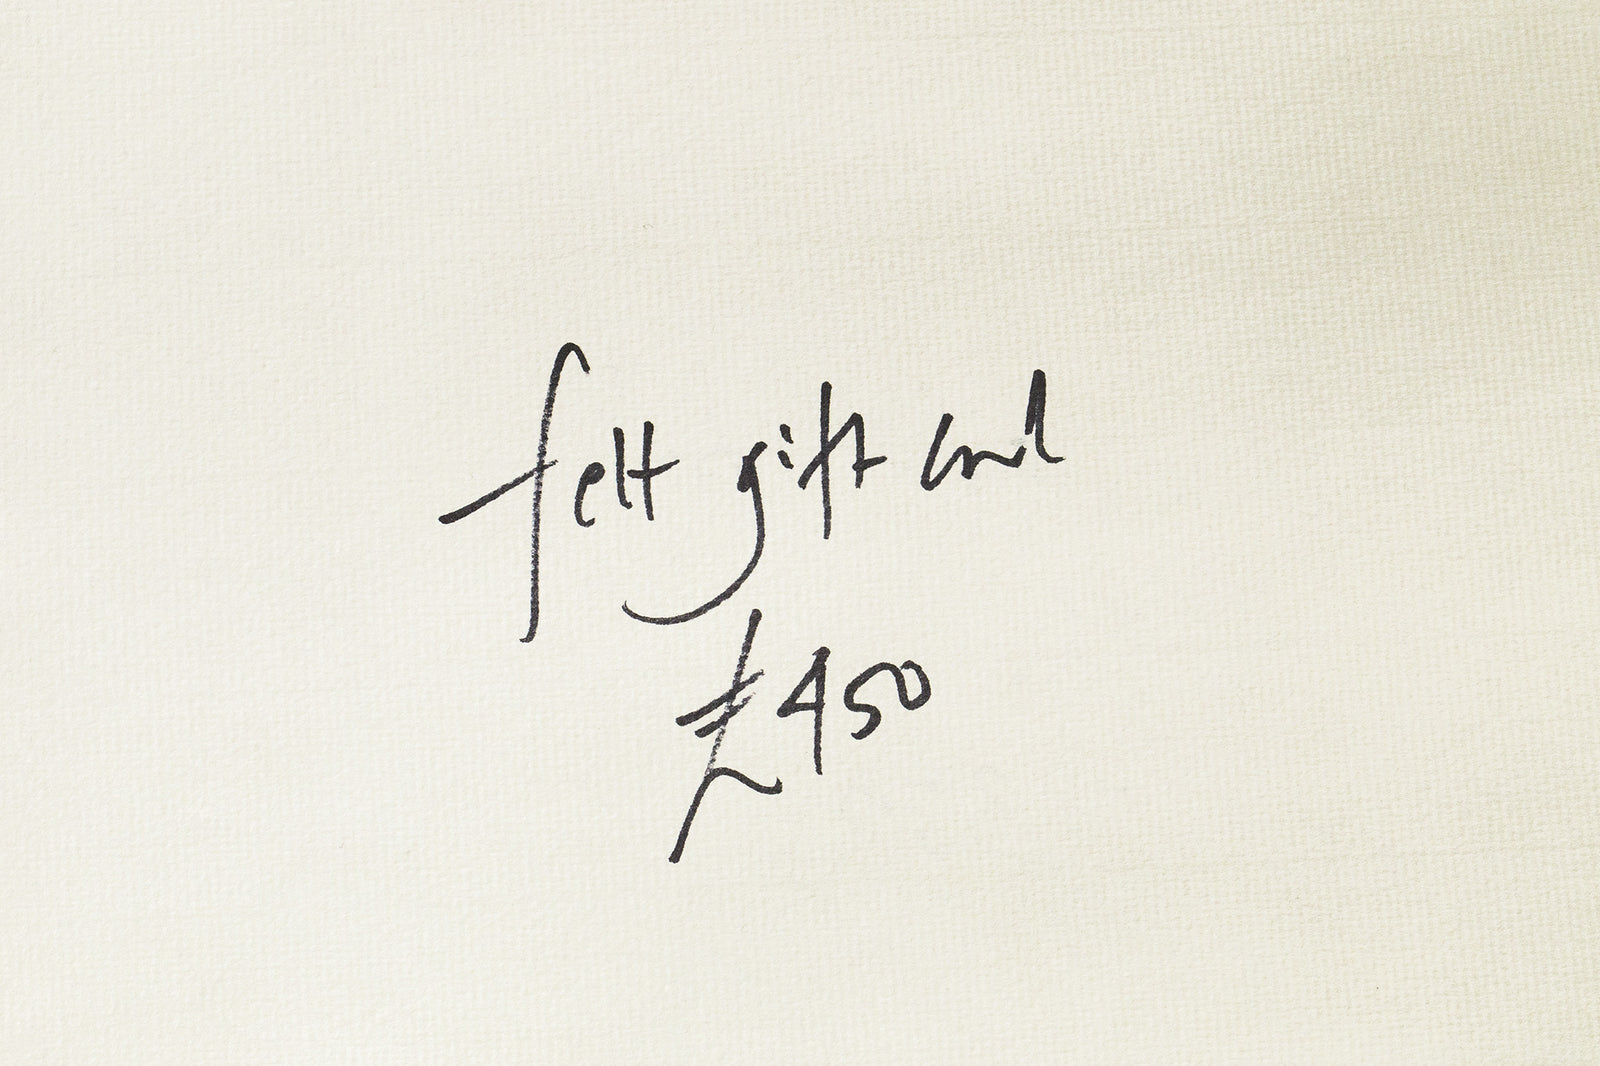 felt gift card
£450